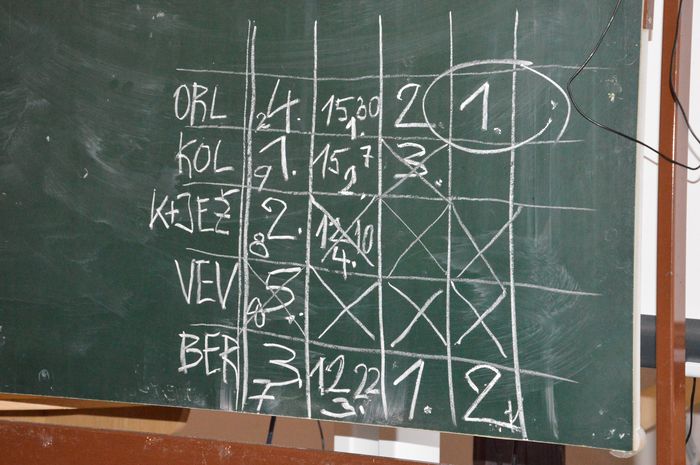 ORL 2 4. 15,30 1. 2 1.
KOL 9 1. 15,7 2. 3.
K+JEŽ 8 2. 12,10 4.
VEV 0 5.
BER 7 3 12,22 3. 1. 2.